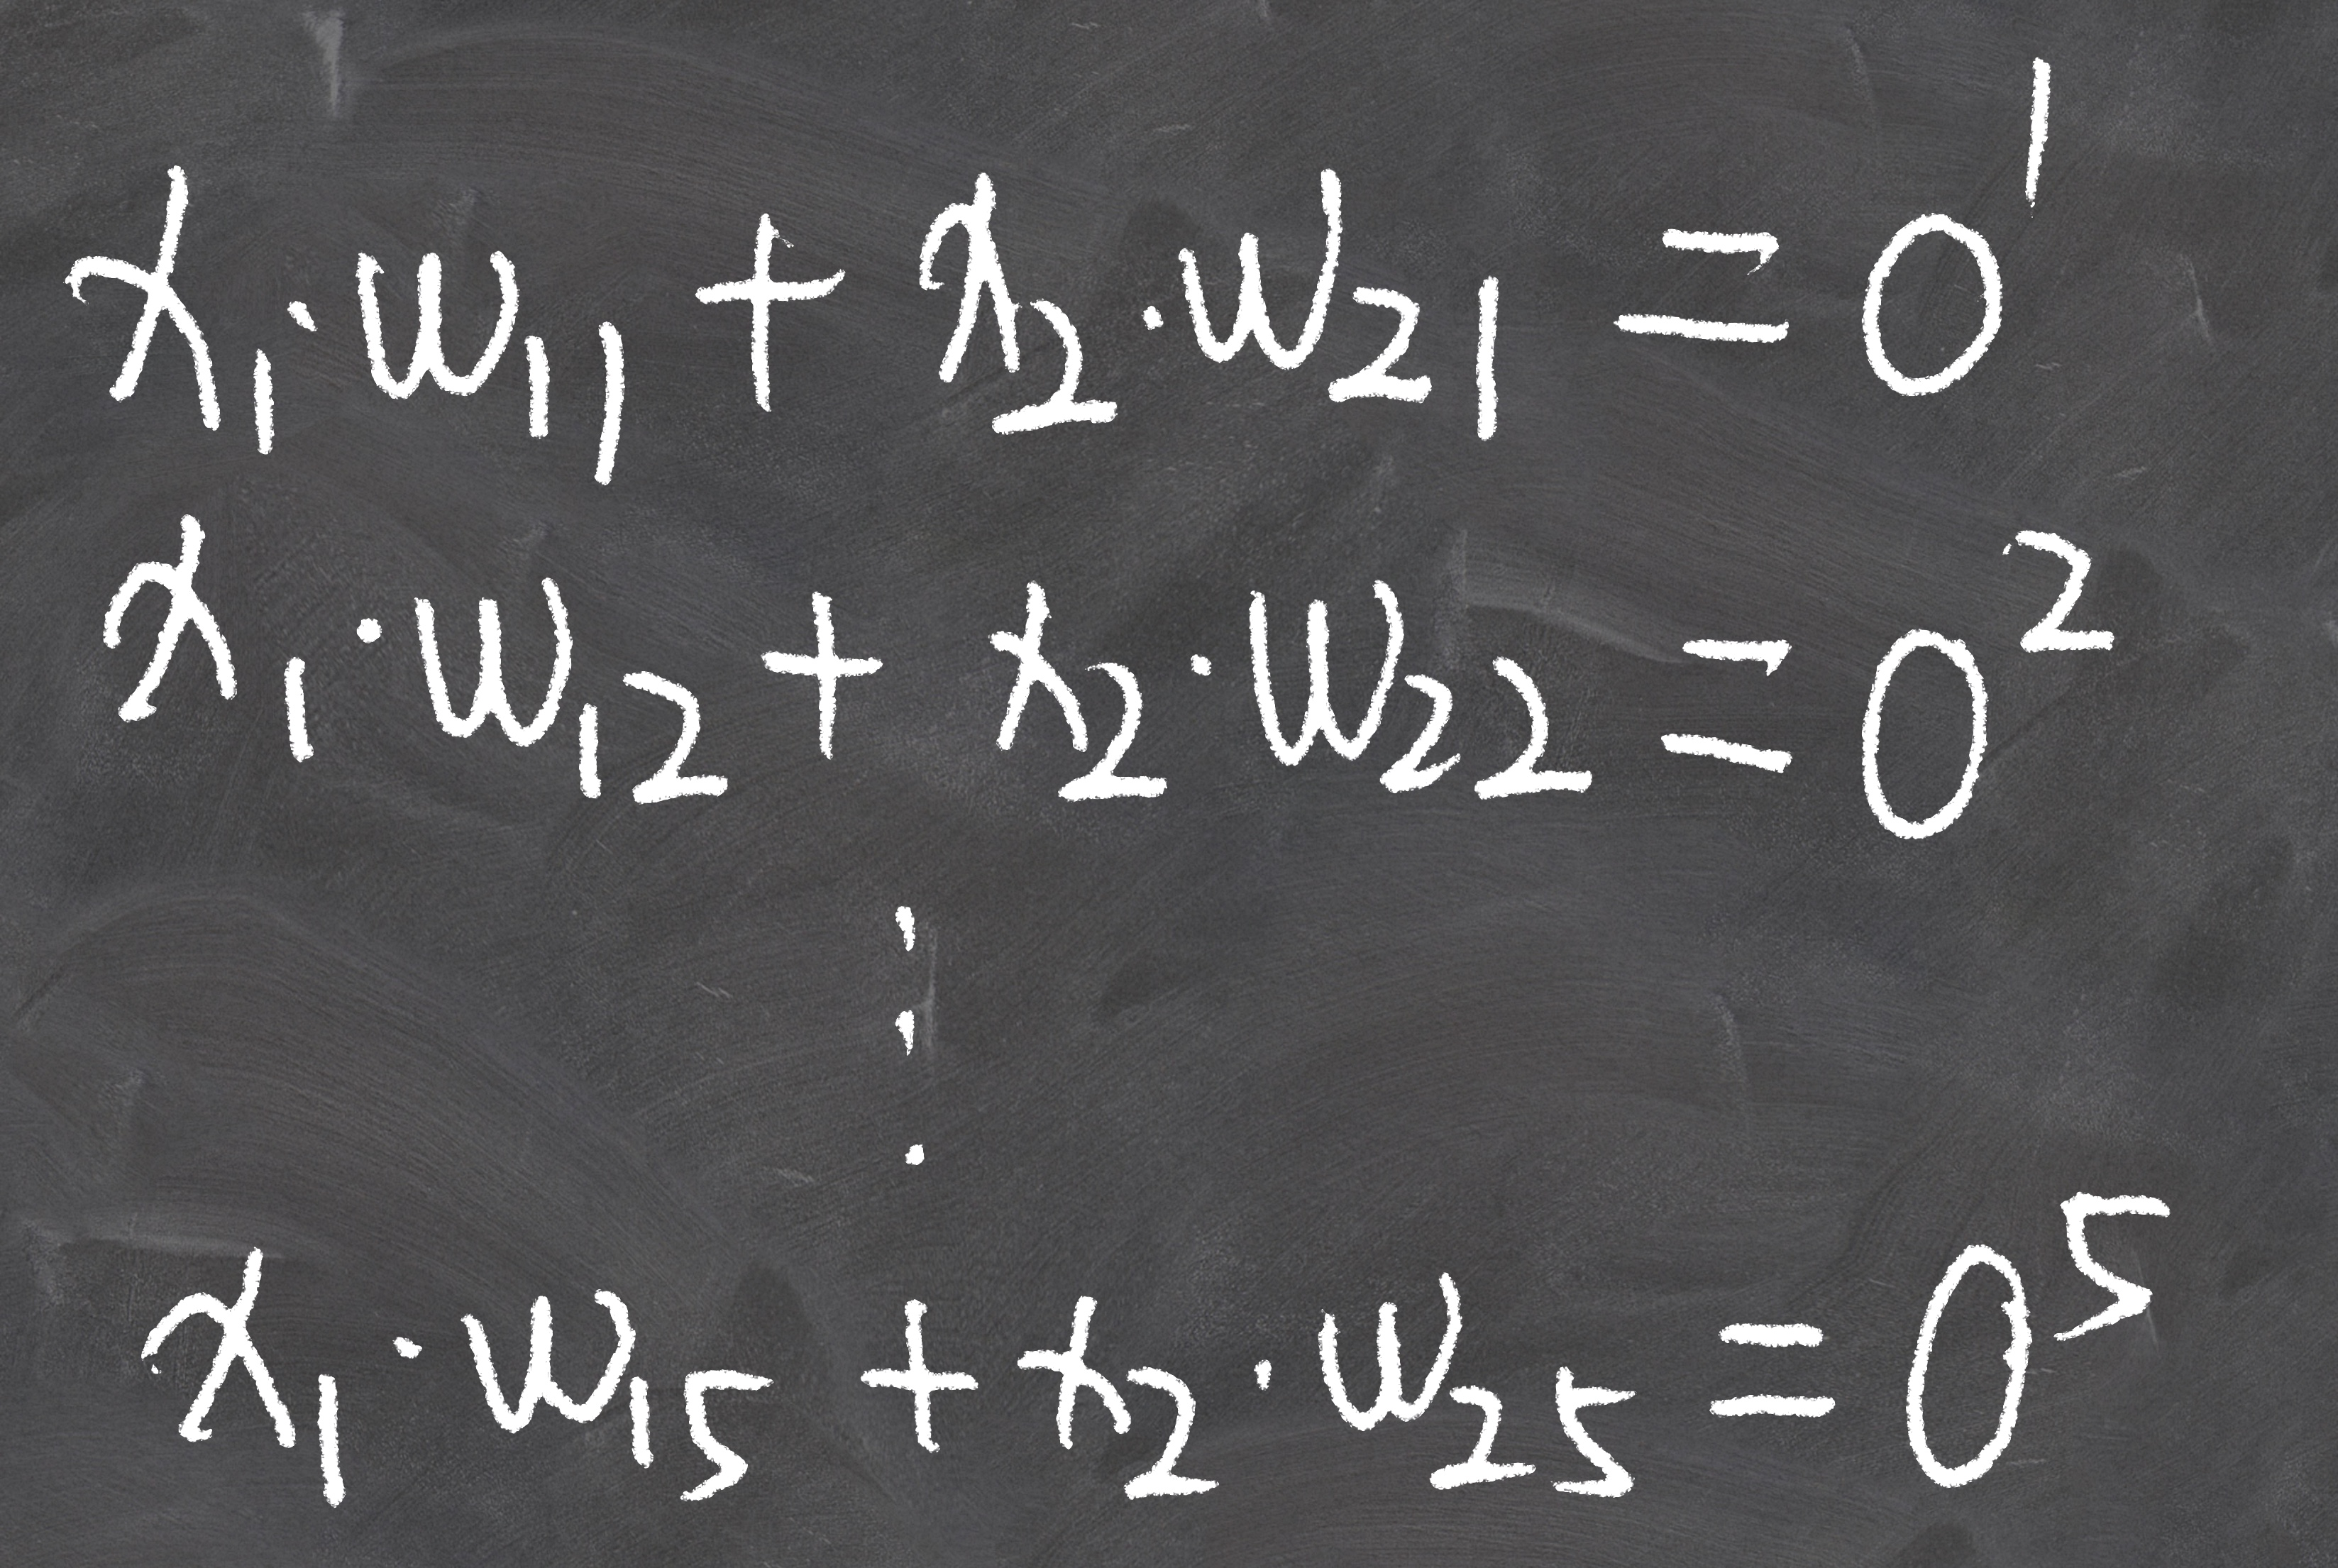 x₁·w₁₁ + x₂·w₂₁ = O¹
x₁·w₁₂ + x₂·w₂₂ = O²
⋮
x₁·w₁₅ + x₂·w₂₅ = O⁵